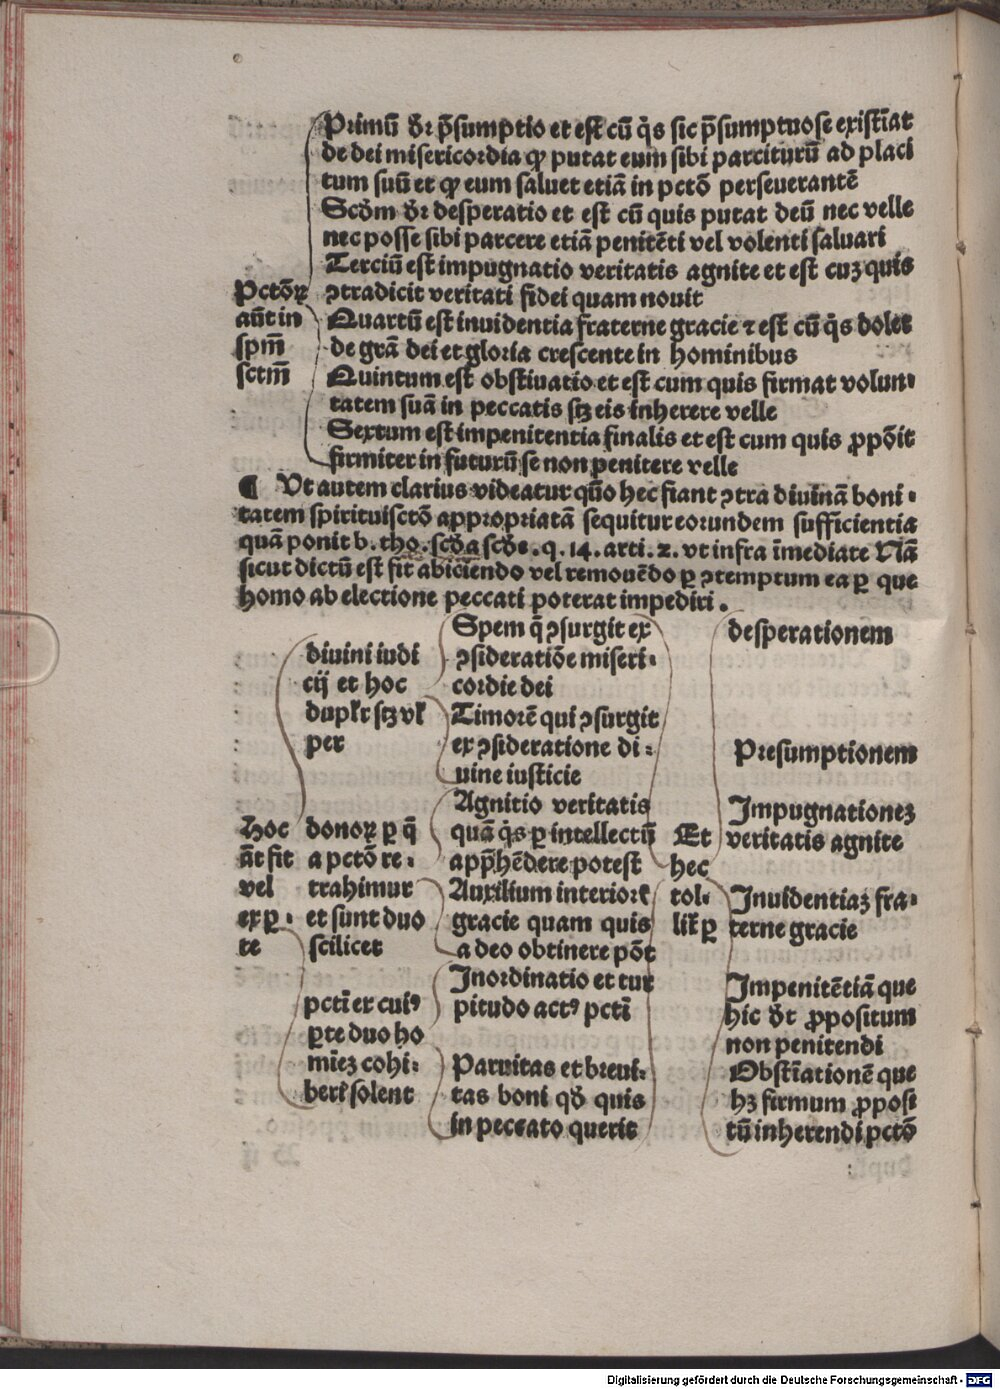 Primū dr̄ p̄sumptio et est cū q̇s sic p̄sumptuose existīat
de dei misericordia qꝫ putat eum sibi parciturū ad placi
tum suū et qꝫ eum saluet etiā in pctō perseuerantē
Scd̄m dr̄ desperatio et est cū quis putat deū nec velle
nec posse sibi parcere etiā penitēti vel volenti saluari
Terciū est impugnatio veritatis agnite et est cuꝫ quis
ꝯtradicit veritati fidei quam nouit
Pctōꝝ
aūt in
spm̄
sctm̄
Quartū est inuidentia fraterne gracie ⁊ est cū q̇s dolet
de grā dei et gloria crescente in hominibus
Quintum est obstiuatio et est cum quis firmat volun⸗
tatem suā in peccatis sꝫ eis inherere velle
Sextum est impenitentia finalis et est cum quis ꝓpōit
firmiter in futurū se non penitere velle
¶ Vt autem clarius videatur quō hec fiant ꝯtra diuinā boni⸗
tatem spirituisctō appropriatā sequitur eorundem sufficientia
quā ponit b. tho. scd̄a scd̄e. q. 14. arti. 2. vt infra īmediate Nā
sicut dictū est fit abiciendo vel remouēdo ꝑ ꝯtemptum ea ꝑ que
homo ab electione peccati poterat impediri.
Hoc
āt fit
vel
ex ꝑ⸗
te
diuini iudi
cij et hoc
duplr̄ sꝫ vl̄
per
donoꝝ ꝑ q̄
a pctō re⸗
trahimur
et sunt duo
scilicet
pcti er cuiꝰ
ꝑte duo ho
mīeꝫ cohi⸗
ber̄ solent
Spem q̄ ꝯsurgit ex
ꝯsideratiōe miseri⸗
cordie dei
Timorē qui ꝯsurgit
ex ꝯsideratione di⸗
uine iusticie
Agnitio veritatis
quā q̇s ꝑ intellectū
app̄hēdere potest
Auxilium interior̄
gracie quam quis
a deo obtinere pōt
Inordinatio et tur
pitudo actꝰ pcti
Paruitas et breui⸗
tas boni qd̄ quis
in peccato querit
Et
hec
tol⸗
lit̄ ꝑ
desperationem
Presumptionem
Impugnationeꝫ
veritatis agnite
Inuidentiaꝫ fra⸗
terne gracie
Impenitētiā que
hic dr̄ ꝓpositum
non penitendi
Obstīationē que
hꝫ firmum ꝓposi
tū inherendi pctō
Digitalisierung gefördert durch die Deutsche Forschungsgemeinschaft - DFG